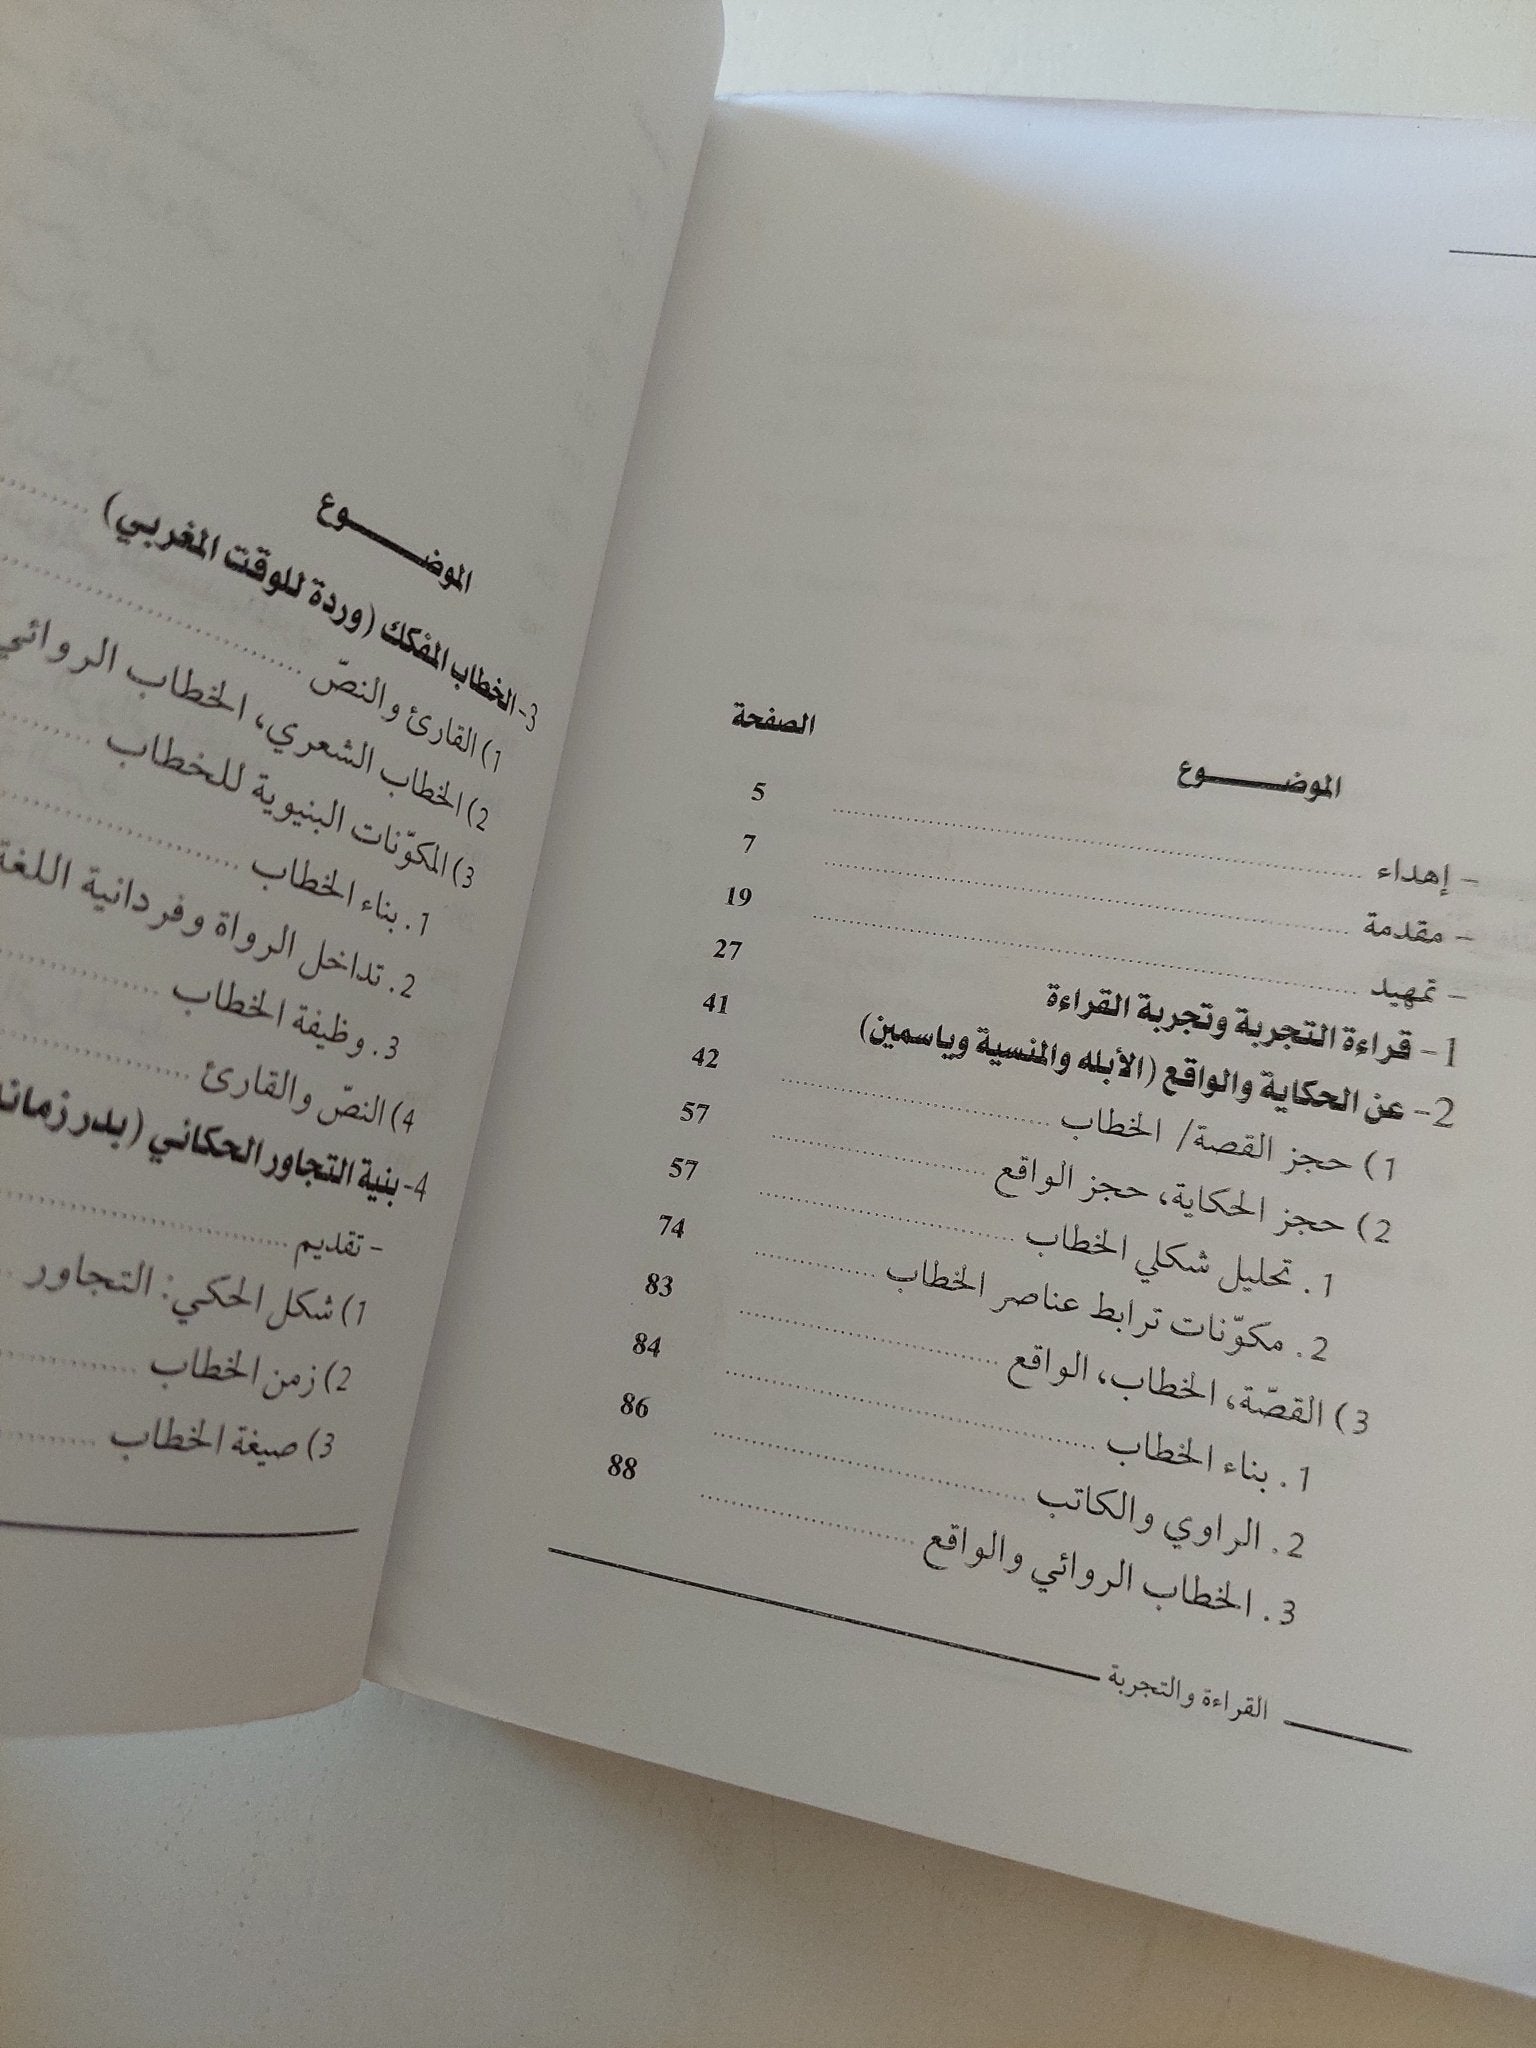 الموضـــــوع الصفحة
- إهداء ........ 5
- مقدمة ........ 7
- تمهيد ........ 19
1- قراءة التجربة وتجربة القراءة 27
2- عن الحكاية والواقع (الأبله والمنسية وياسمين) 41
1) حجز القصة/ الخطاب ........ 42
2) حجز الحكاية، حجز الواقع ........ 57
1. تحليل شكلي الخطاب ........ 57
2. مكوّنات ترابط عناصر الخطاب ........ 74
3) القصّة، الخطاب، الواقع ........ 83
1. بناء الخطاب ........ 84
2. الراوي والكاتب ........ 86
3. الخطاب الروائي والواقع ........ 88
القراءة والتجربة
الموضـــــوع
3- الخطاب المفكك (وردة للوقت المغربي) ........
1) القارئ والنصّ ........
2) الخطاب الشعري، الخطاب الروائي
3) المكوّنات البنيوية للخطاب ........
1. بناء الخطاب ........
2. تداخل الرواة وفردانية اللغة
3. وظيفة الخطاب ........
4) النصّ والقارئ ........
4- بنية التجاور الحكائي (بدر زمانه
- تقديم ........
1) شكل الحكي: التجاور ........
2) زمن الخطاب ........
3) صيغة الخطاب ........